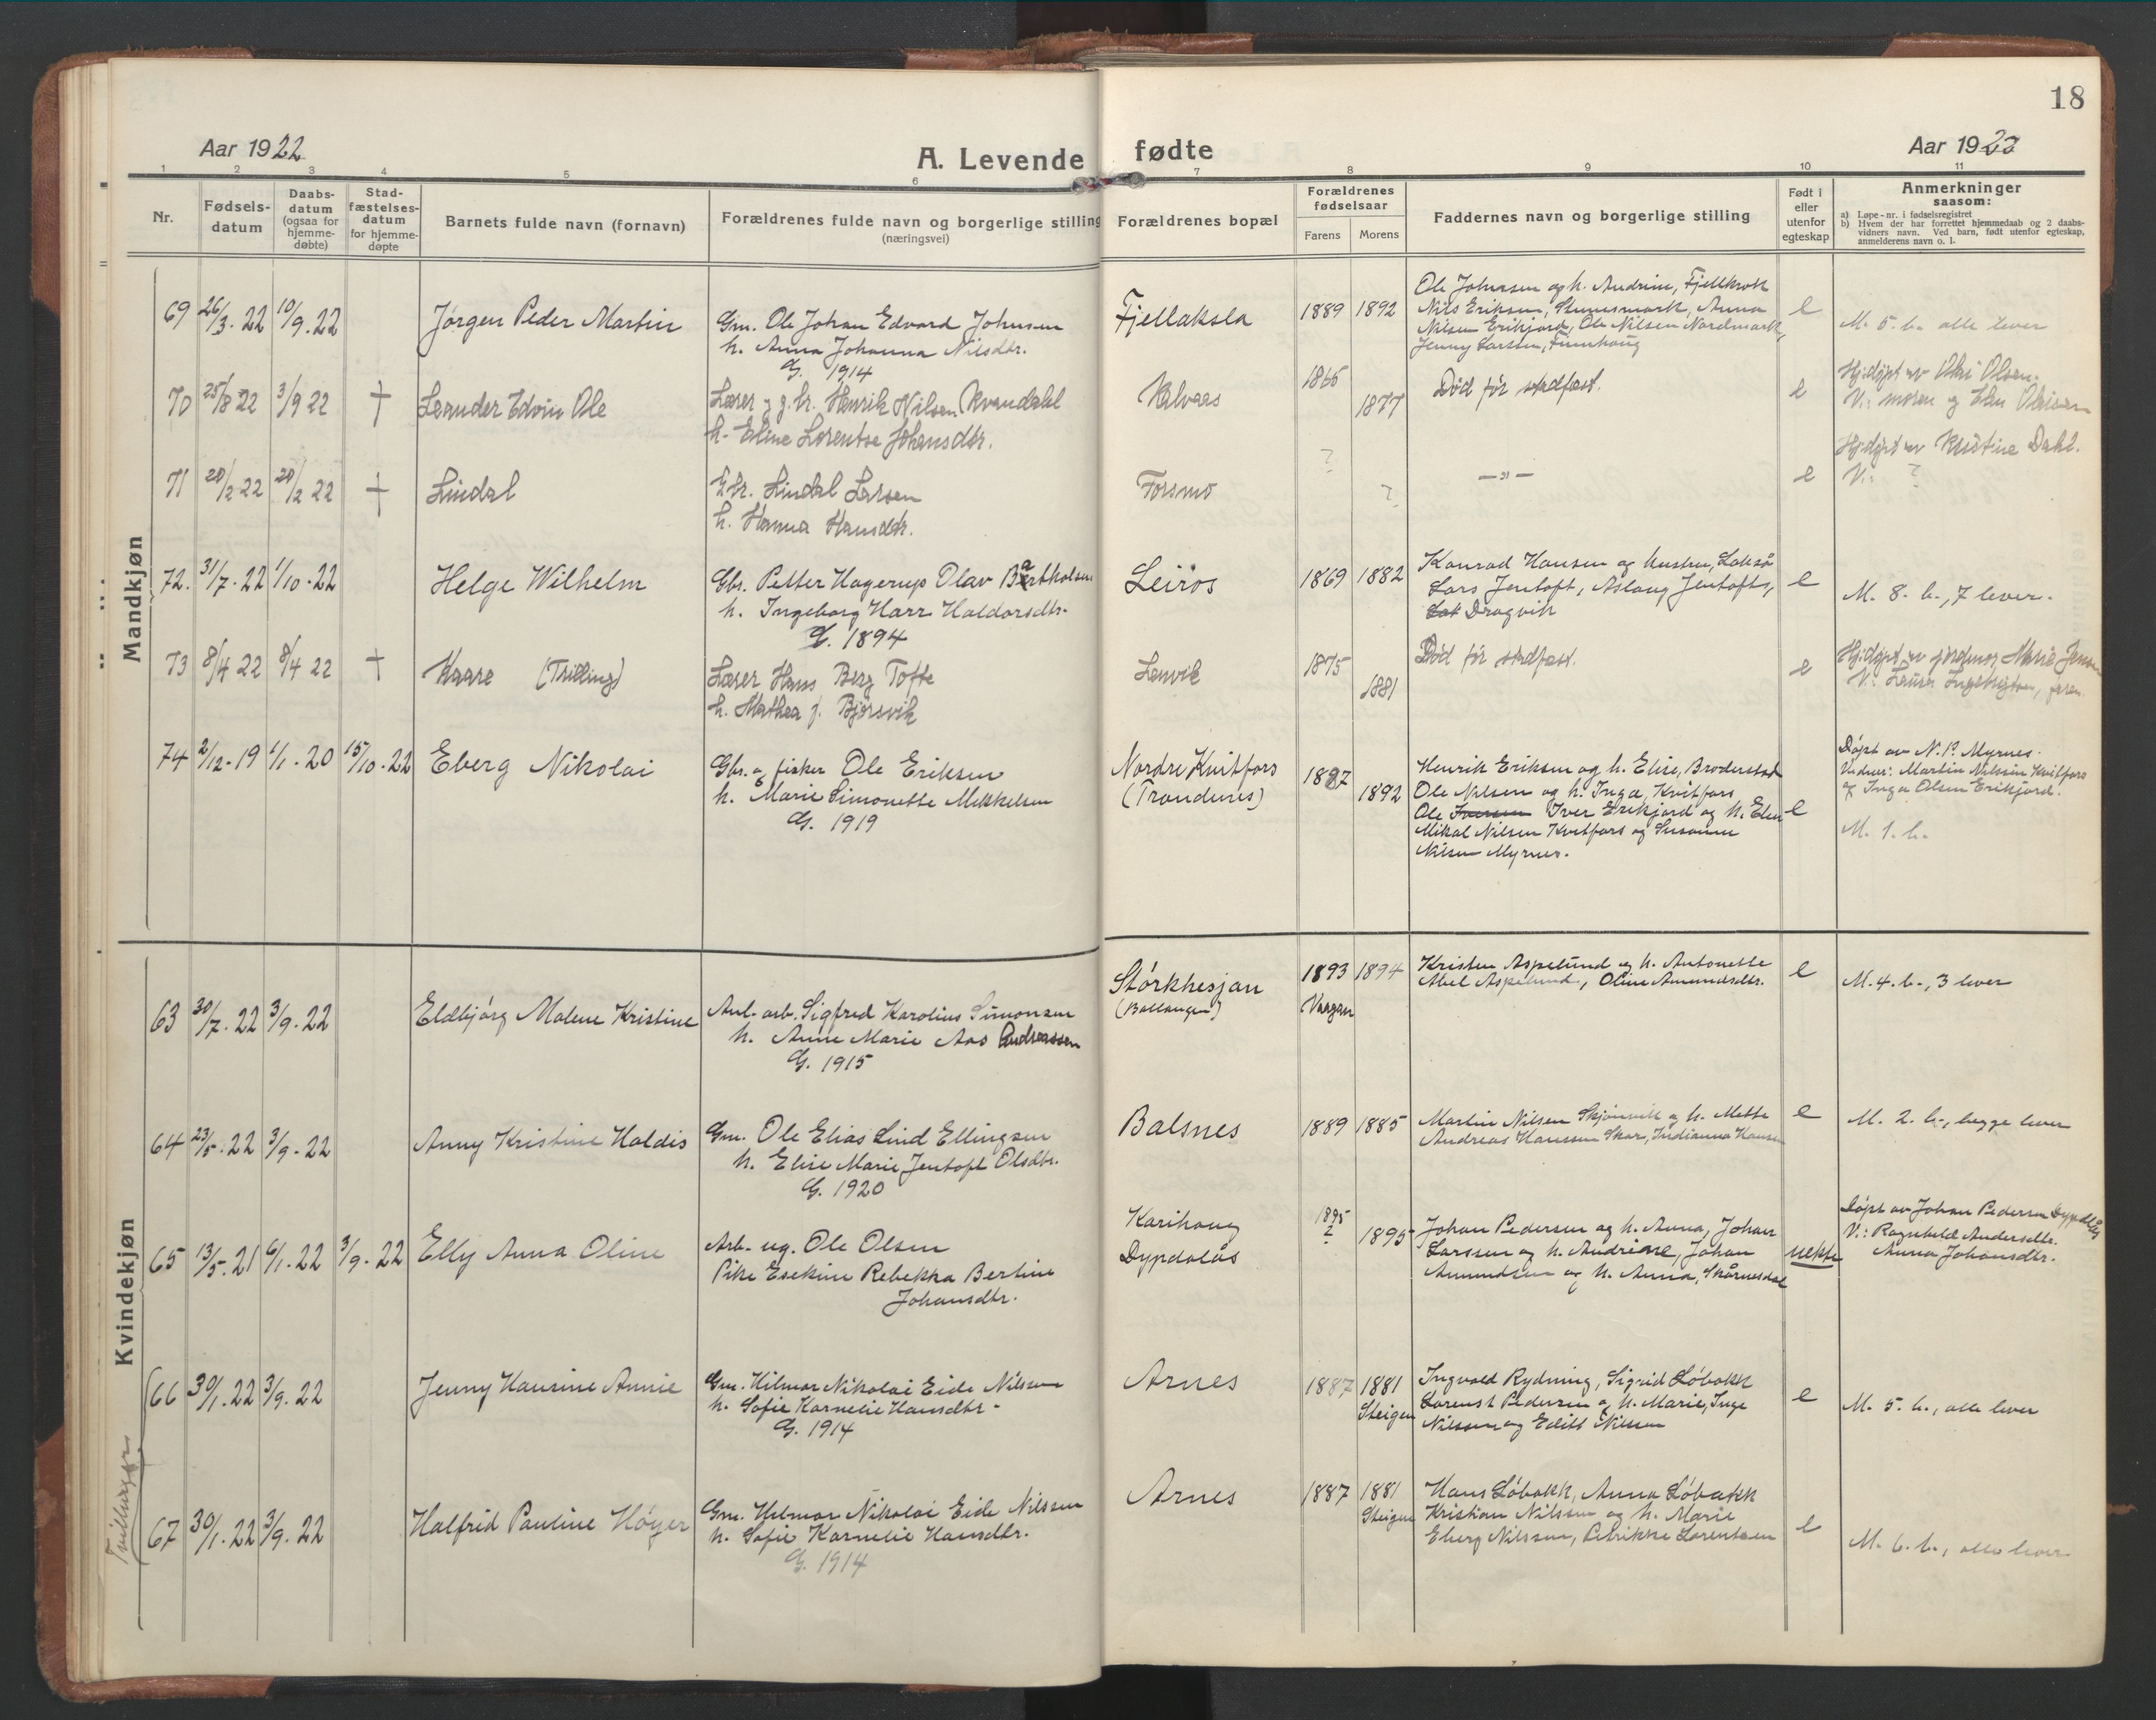 18
Aar 1922
A. Levende fødte
Aar 1922
1 2 3 4 5 6 7 8 9 10 11
Nr.
Fødsels-
datum
Daabs-
datum
(ogsaa for
hjemme-
døbte)
Stad-
fæstelses-
datum
for hjemme-
døpte
Barnets fulde navn (fornavn)
Forældrenes fulde navn og borgerlige stilling
(næringsvei)
Forældrenes bopæl
Forældrenes
fødselsaar
Farens Morens
Faddernes navn og borgerlige stilling
Født i
eller
utenfor
egteskap
Anmerkninger
saasom:
a) Løpe-nr. i fødselsregistret
b) Hvem der har forrettet hjemmedaab og 2 daabs-
vidners navn. Ved barn, født utenfor egteskap,
anmelderens navn o. l.
Mandkjøn
69 26/3.22 10/9.22 Jørgen Peder Martin
Gm. Ole Johan Edvard Johnsen
h. Anna Johanna Nilsdtr.
G. 1914
Fjellaksla 1889 1892
Ole Johnsen og h. Andrine, Fjellkrok
Nils Eriksen, Anna
Nilsen Erikjord, Ole Nilsen Nordmark,
Jenny Larsen, Finnhaug
e
M. 5. b. alle lever
70 25/8 22 3/9 22 † Leander Edvin Ole
Læser og g.br. Henrik Nilsen Kvandahl
h. Eline Lorentse Johansdtr.
Kalvaas 1866 1877
Død før stadfæst.
e
Hj.døpt av Olsen.
V: moren og
71 20/2 22 20/2 22 † Lindal
Gbr. Lindal Larsen
h. Hanna Hansdtr.
Forsmo ? ?
— " —
e
Hj.døpt av Kristine Dahl.
V: ?
72. 31/7.22 1/10.22 Helge Wilhelm
Gbr. Petter Hagerup Olav Bartholsen
h. Ingeborg Harr Haldorsdtr.
G. 1894
Leiros 1869 1882
Konrad Hansen og hustru, Lakså
Lars Jentoft, Aslaug Jentofts,
Dragvik
e
M. 8. b., 7 lever.
73 8/4 22 8/4 22 † Kaare (Trilling)
Læser Hans Berg Tofte
h. Mathea f. Bjørsvik
Lenvik 1875 1881
Død før stadfæst.
e
Hj.døpt av jordmor Marie Jensen
V: Ingebrigtsen, faren
74 2/12.19 1/1.20 15/10.22 Eberg Nikolai
Gbr. og fisker Ole Eriksen
h. Marie Simonette Mikkelsen
G. 1919
Nordre Kvitfors
(Trondenes)
1887 1892
Henrik Eriksen og h. Elise, Broderstad
Ole Nilsen og h. Inga, Kvitfors
Ole Iversen Iver Erikjord og h. Elen
Mikal Nilsen Kvitfors og Susanna
Nilsen Myrnes.
e
Døpt av N. P. Myrnes.
Vidner: Martin Nilssen Kvitfors
og Inga Olsen Erikjord.
M. 1. b.
Kvindekjøn
63 30/7.22 3/9.22 Eldbjørg Malene Kristine
Anl. arb. Sigfred Karolius Simonsen
h. Anne Marie Aas Andreassen
G. 1915
Storkhesjan
(Ballangen)
1893 1894
Vaagan
Kristen Aspelund og h. Antonette
Abel Aspelund, Oline Amundsdtr.
e
M. 4. b., 3 lever
64 23/5.22 3/9.22 Anny Kristine Haldis
Gm. Ole Elias Lind Ellingsen
h. Elise Marie Jentoft Olsdtr.
G. 1920
Balsnes 1889 1885
Martin Nilsen Skjønvik og h. Mette
Andreas Hanssen Skar, Indianna Hansen
e
M. 2. b., begge lever
65 13/5.21 6/1.22 3/9.22 Elly Anna Oline
Arb. ug. Ole Olsen
Pike Esekine Rebekka Bertine
Johansdtr.
Karihaug
Dypdalås
1895
? 1895
Johan Pedersen og h. Anna, Johan
Larssen og h. Andriane, Johan
Amundsen og h. Anna, Skårnesdal
uekte
Døpt av Johan Pedersen Dypdalås
V.: Ragnhild Andersdtr.
Anna Johansdtr.
Tvillinger
66 30/1.22 3/9.22 Jenny Haurine Annie
Gm. Hilmar Nikolai Eide Nilssen
h. Sofie Kornelie Hansdtr.
G. 1914
Arnes 1887 1881
Steigen
Ingvald Rydning, Sigrid Løbakk
Lorents Pedersen og h. Marie, Inge
Nilssen og Edith Nilssen
e
M. 5. b., alle lever
67 30/1.22 3/9.22 Halfrid Pauline Høyer
Gm. Hilmar Nikolai Eide Nilssen
h. Sofie Kornelie Hansdtr.
G. 1914
Arnes 1887 1881
Steigen
Hans Løbakk, Anna Løbakk
Kristian Nilssen og h. Marie
Eberg Nilssen, Petrikke Lorentsen
e
M. 6. b., alle lever